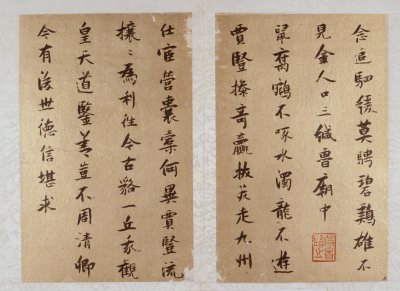 念追駟緩莫騁碧鷄雄不
見金人口三緘魯廟中
鼠腐鵷不啄水濁龍不遊
賈豎操奇贏板荒走九州
仕宦營囊橐何異賈豎流
攘〻為利往今古貉一丘我觀
皇天道鑒善豈不周清卿
今有後世德信堪求